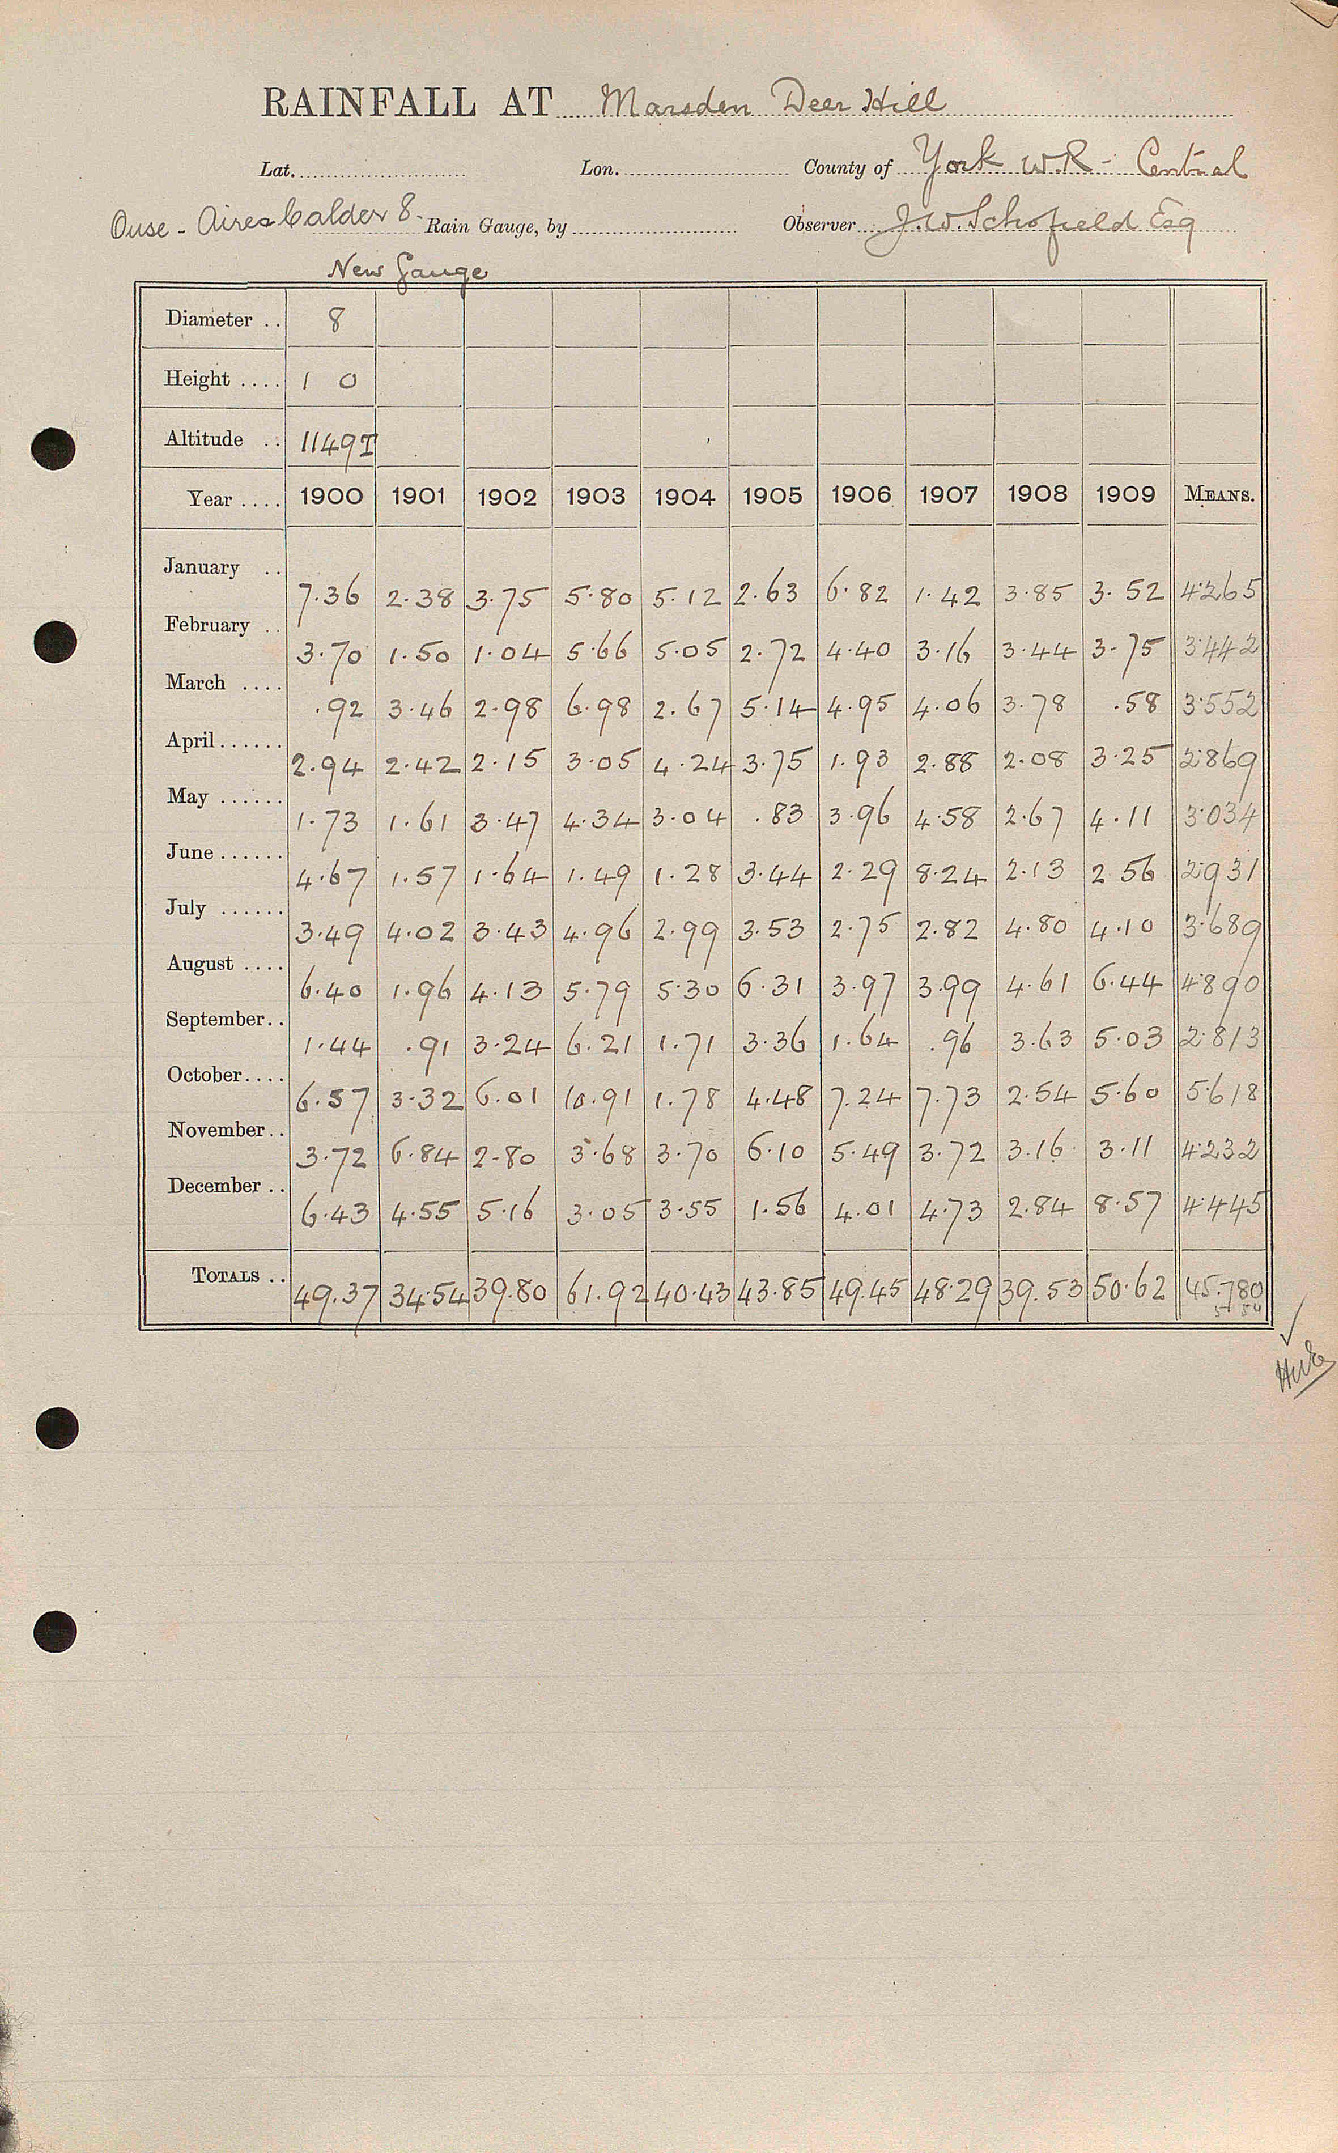 RAINFALL AT Marsden Deer Hill
Lat. Lon. County of York W.R - Central
Ouse - Aire & Calder 8. Rain Gauge, by Observer J.W. Schofield Esq
New Gauge
Diameter .. 8
Height .... 1 0
Altitude .. 1149T
Year .... 1900 1901 1902 1903 1904 1905 1906 1907 1908 1909 MEANS.
January .. 7.36 2.38 3.75 5.80 5.12 2.63 6.82 1.42 3.85 3.52 4.265
February .. 3.70 1.50 1.04 5.66 5.05 2.72 4.40 3.16 3.44 3.75 3.442
March .... .92 3.46 2.98 6.98 2.67 5.14 4.95 4.06 3.78 .58 3.552
April...... 2.94 2.42 2.15 3.05 4.24 3.75 1.93 2.88 2.08 3.25 2.869
May ...... 1.73 1.61 3.47 4.34 3.04 .83 3.96 4.58 2.67 4.11 3.034
June ...... 4.67 1.57 1.64 1.49 1.28 3.44 2.29 8.24 2.13 2.56 2.931
July ...... 3.49 4.02 3.43 4.96 2.99 3.53 2.75 2.82 4.80 4.10 3.689
August .... 6.40 1.96 4.13 5.79 5.30 6.31 3.97 3.99 4.61 6.44 4.890
September.. 1.44 .91 3.24 6.21 1.71 3.36 1.64 .96 3.63 5.03 2.813
October.... 6.57 3.32 6.01 10.91 1.78 4.48 7.24 7.73 2.54 5.60 5.618
November.. 3.72 6.84 2.80 3.68 3.70 6.10 5.49 3.72 3.16 3.11 4.232
December .. 6.43 4.55 5.16 3.05 3.55 1.56 4.01 4.73 2.84 8.57 4.445
TOTALS .. 49.37 34.54 39.80 61.92 40.43 43.85 49.45 48.29 39.53 50.62 45.780